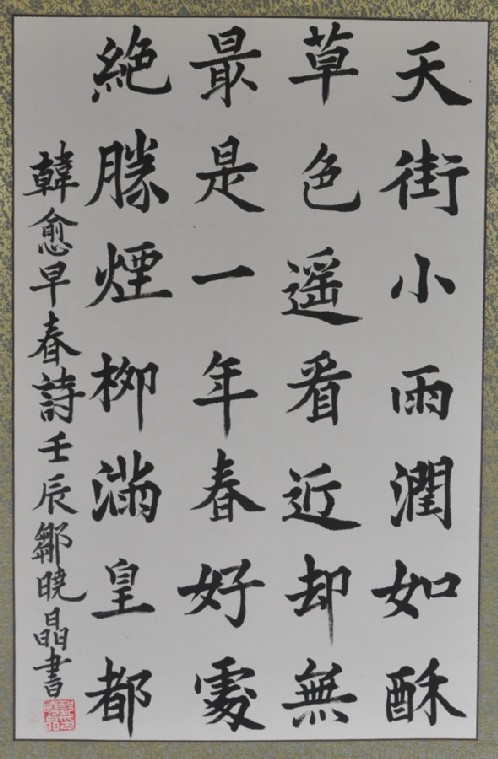 天街小雨潤如酥
草色遥看近却無
最是一年春好處
絶勝煙柳滿皇都
韓愈早春詩壬辰鄒曉晶書